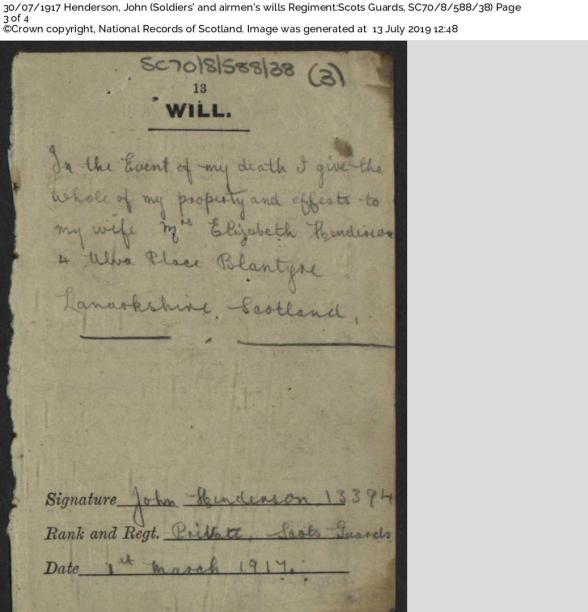 30/07/1917 Henderson, John (Soldiers' and airmen's wills Regiment:Scots Guards, SC70/8/588/38) Page
3 of 4
©Crown copyright, National Records of Scotland. Image was generated at 13 July 2019 12:48
SC70/8/588/38 (3)
13
WILL.
In the Event of my death I give the
whole of my property and effects to
my wife Mrs Elizabeth Henderson
4 Place Blantyre
Lanarkshire, Scotland,
Signature John Henderson 13394
Rank and Regt. Private, Scots Guards
Date 1st March 1917.